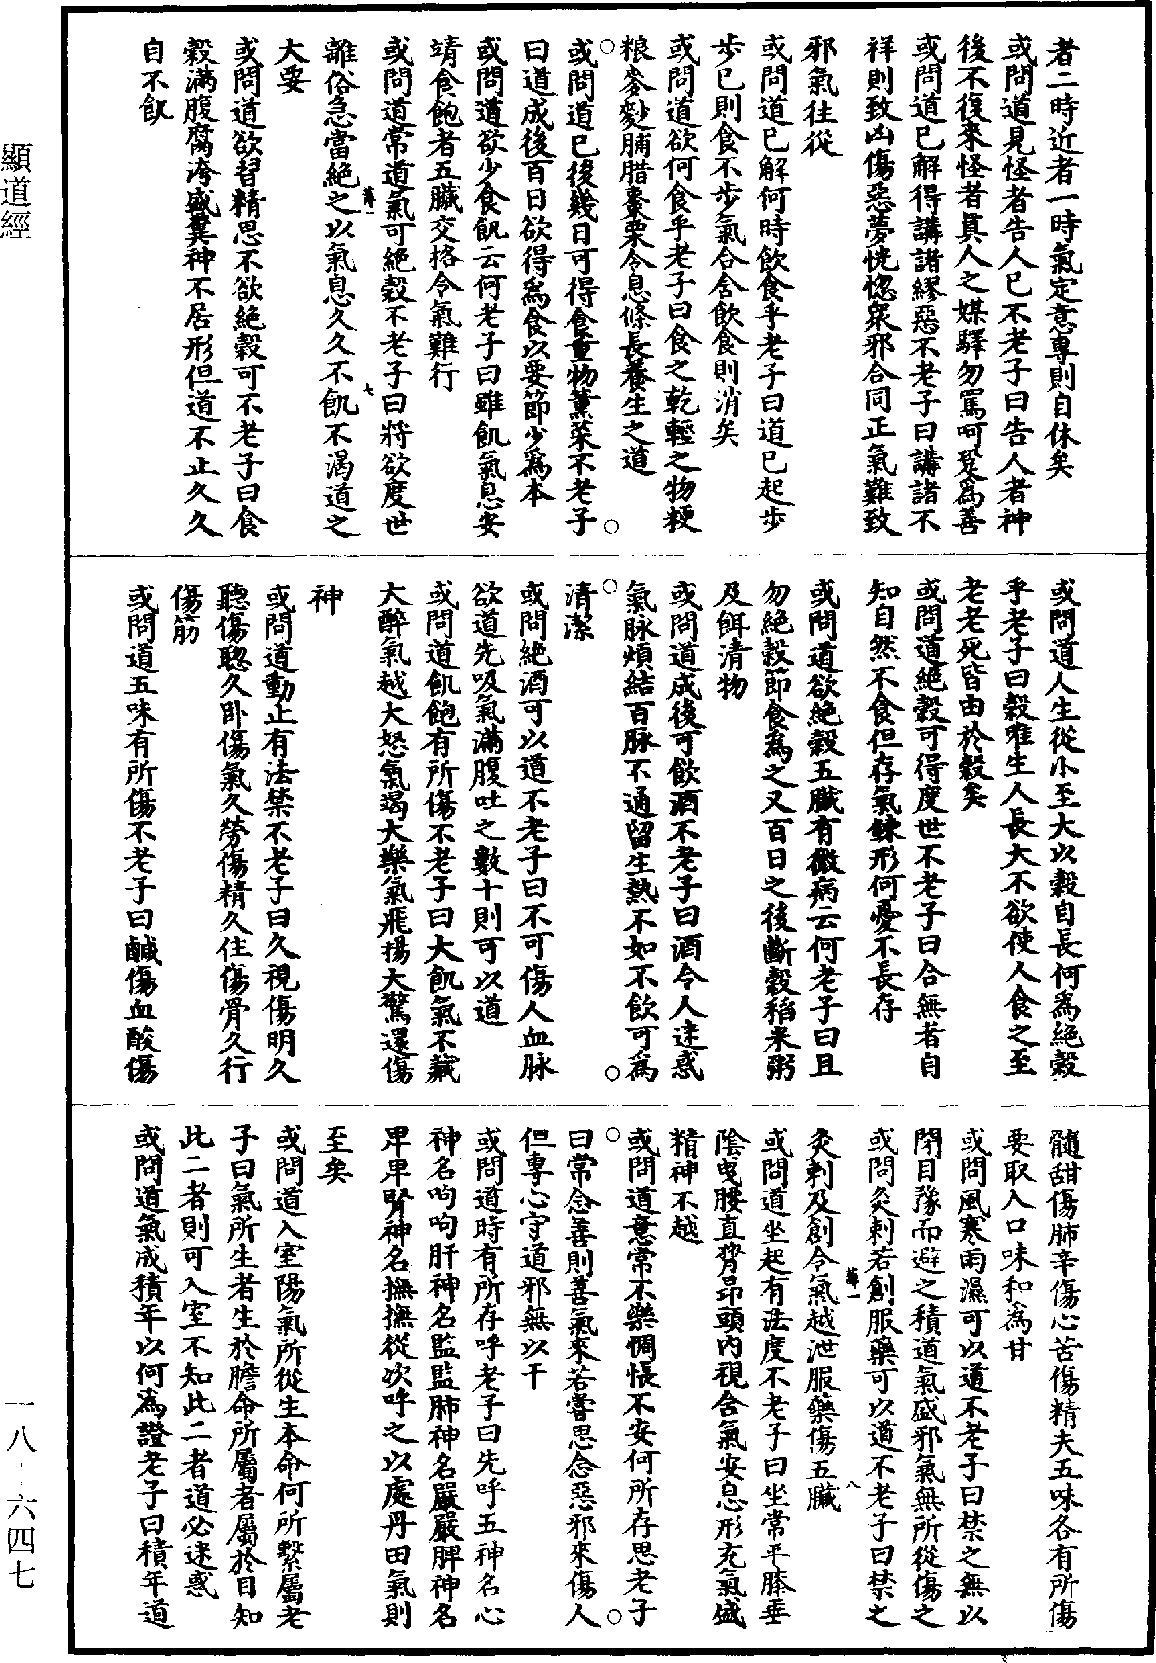 者二時近者一時氣定意專則自休矣
或問道見怪者告人已不老子曰告人者神
後不復來怪者真人之媒驛勿罵呵望為善
或問道已解得講諸繆惡不老子曰講諸不
祥則致凶傷惡夢恍惚眾邪合同正氣難致
邪氣往從
或問道已解何時飲食乎老子曰道已起步
步已則食不步氣合舍飲食則消矣
或問道欲何食乎老子曰食之乾輕之物粳
粮麥麨脯腊棗栗令息條長養生之道
或問道已後幾日可得食重物薰菜不老子
曰道成後百日欲得為食以要節少為本
或問道欲少食飢云何老子曰雖飢氣息安
靖食飽者五臟交挌令氣難行
或問道常道氣可絕穀不老子曰將欲度世
離俗急當絕之以氣息久久不飢不渴道之
大要
或問道欲習精思不欲絕穀可不老子曰食
穀滿腹腐洿盛糞神不居形但道不止久久
自不飢
薄一
七
或問道人生從小至大以穀自長何為絕穀
乎老子曰穀唯生人長大不欲使人食之至
老老死皆由於穀矣
或問道絕穀可得度世不老子曰合無者自
知自然不食但存氣鍊形何憂不長存
或問道欲絕穀五臟有微病云何老子曰且
勿絕穀節食為之又百日之後斷穀稻米粥
及餌清物
或問道成後可飲酒不老子曰酒令人迷惑
氣脉煩結百脉不通留生熱不如不飲可為
清潔
或問絕酒可以道不老子曰不可傷人血脉
欲道先吸氣滿腹吐之數十則可以道
或問道飢飽有所傷不老子曰大飢氣不藏
大醉氣越大怒氣竭大樂氣飛揚大驚還傷
神
或問道動止有法禁不老子曰久視傷明久
聽傷聰久卧傷氣久勞傷精久住傷骨久行
傷筋
或問道五味有所傷不老子曰鹹傷血酸傷
髓甜傷肺辛傷心苦傷精夫五味各有所傷
要取入口味和為甘
或問風寒雨濕可以道不老子曰禁之無以
閉目豫而避之積道氣盛邪氣無所從傷之
或問灸刺若創服藥可以道不老子曰禁之
灸刺及創令氣越泄服藥傷五臟
或問道坐起有法度不老子曰坐常平膝垂
陰曳腰直脊昂頭內視合氣安息形充氣盛
精神不越
或問道意常不樂惆悵不安何所存思老子
曰常念善則善氣來若嘗思念惡邪來傷人
但專心守道邪無以干
或問道時有所存呼老子曰先呼五神名心
神名呴呴肝神名監監肺神名嚴嚴脾神名
卑卑腎神名撫撫從次呼之以處丹田氣則
至矣
或問道入室陽氣所從生本命何所繫屬老
子曰氣所生者生於膽命所屬者屬於目知
此二者則可入室不知此二者道必迷惑
或問道氣成積年以何為證老子曰積年道
薄一
八
顯道經
一八－六四七